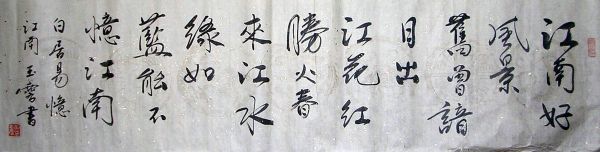 江南好
風景
舊曾諳
日出
江花紅
勝火春
來江水
綠如
藍能不
憶江南
白居易憶
江南 玉書